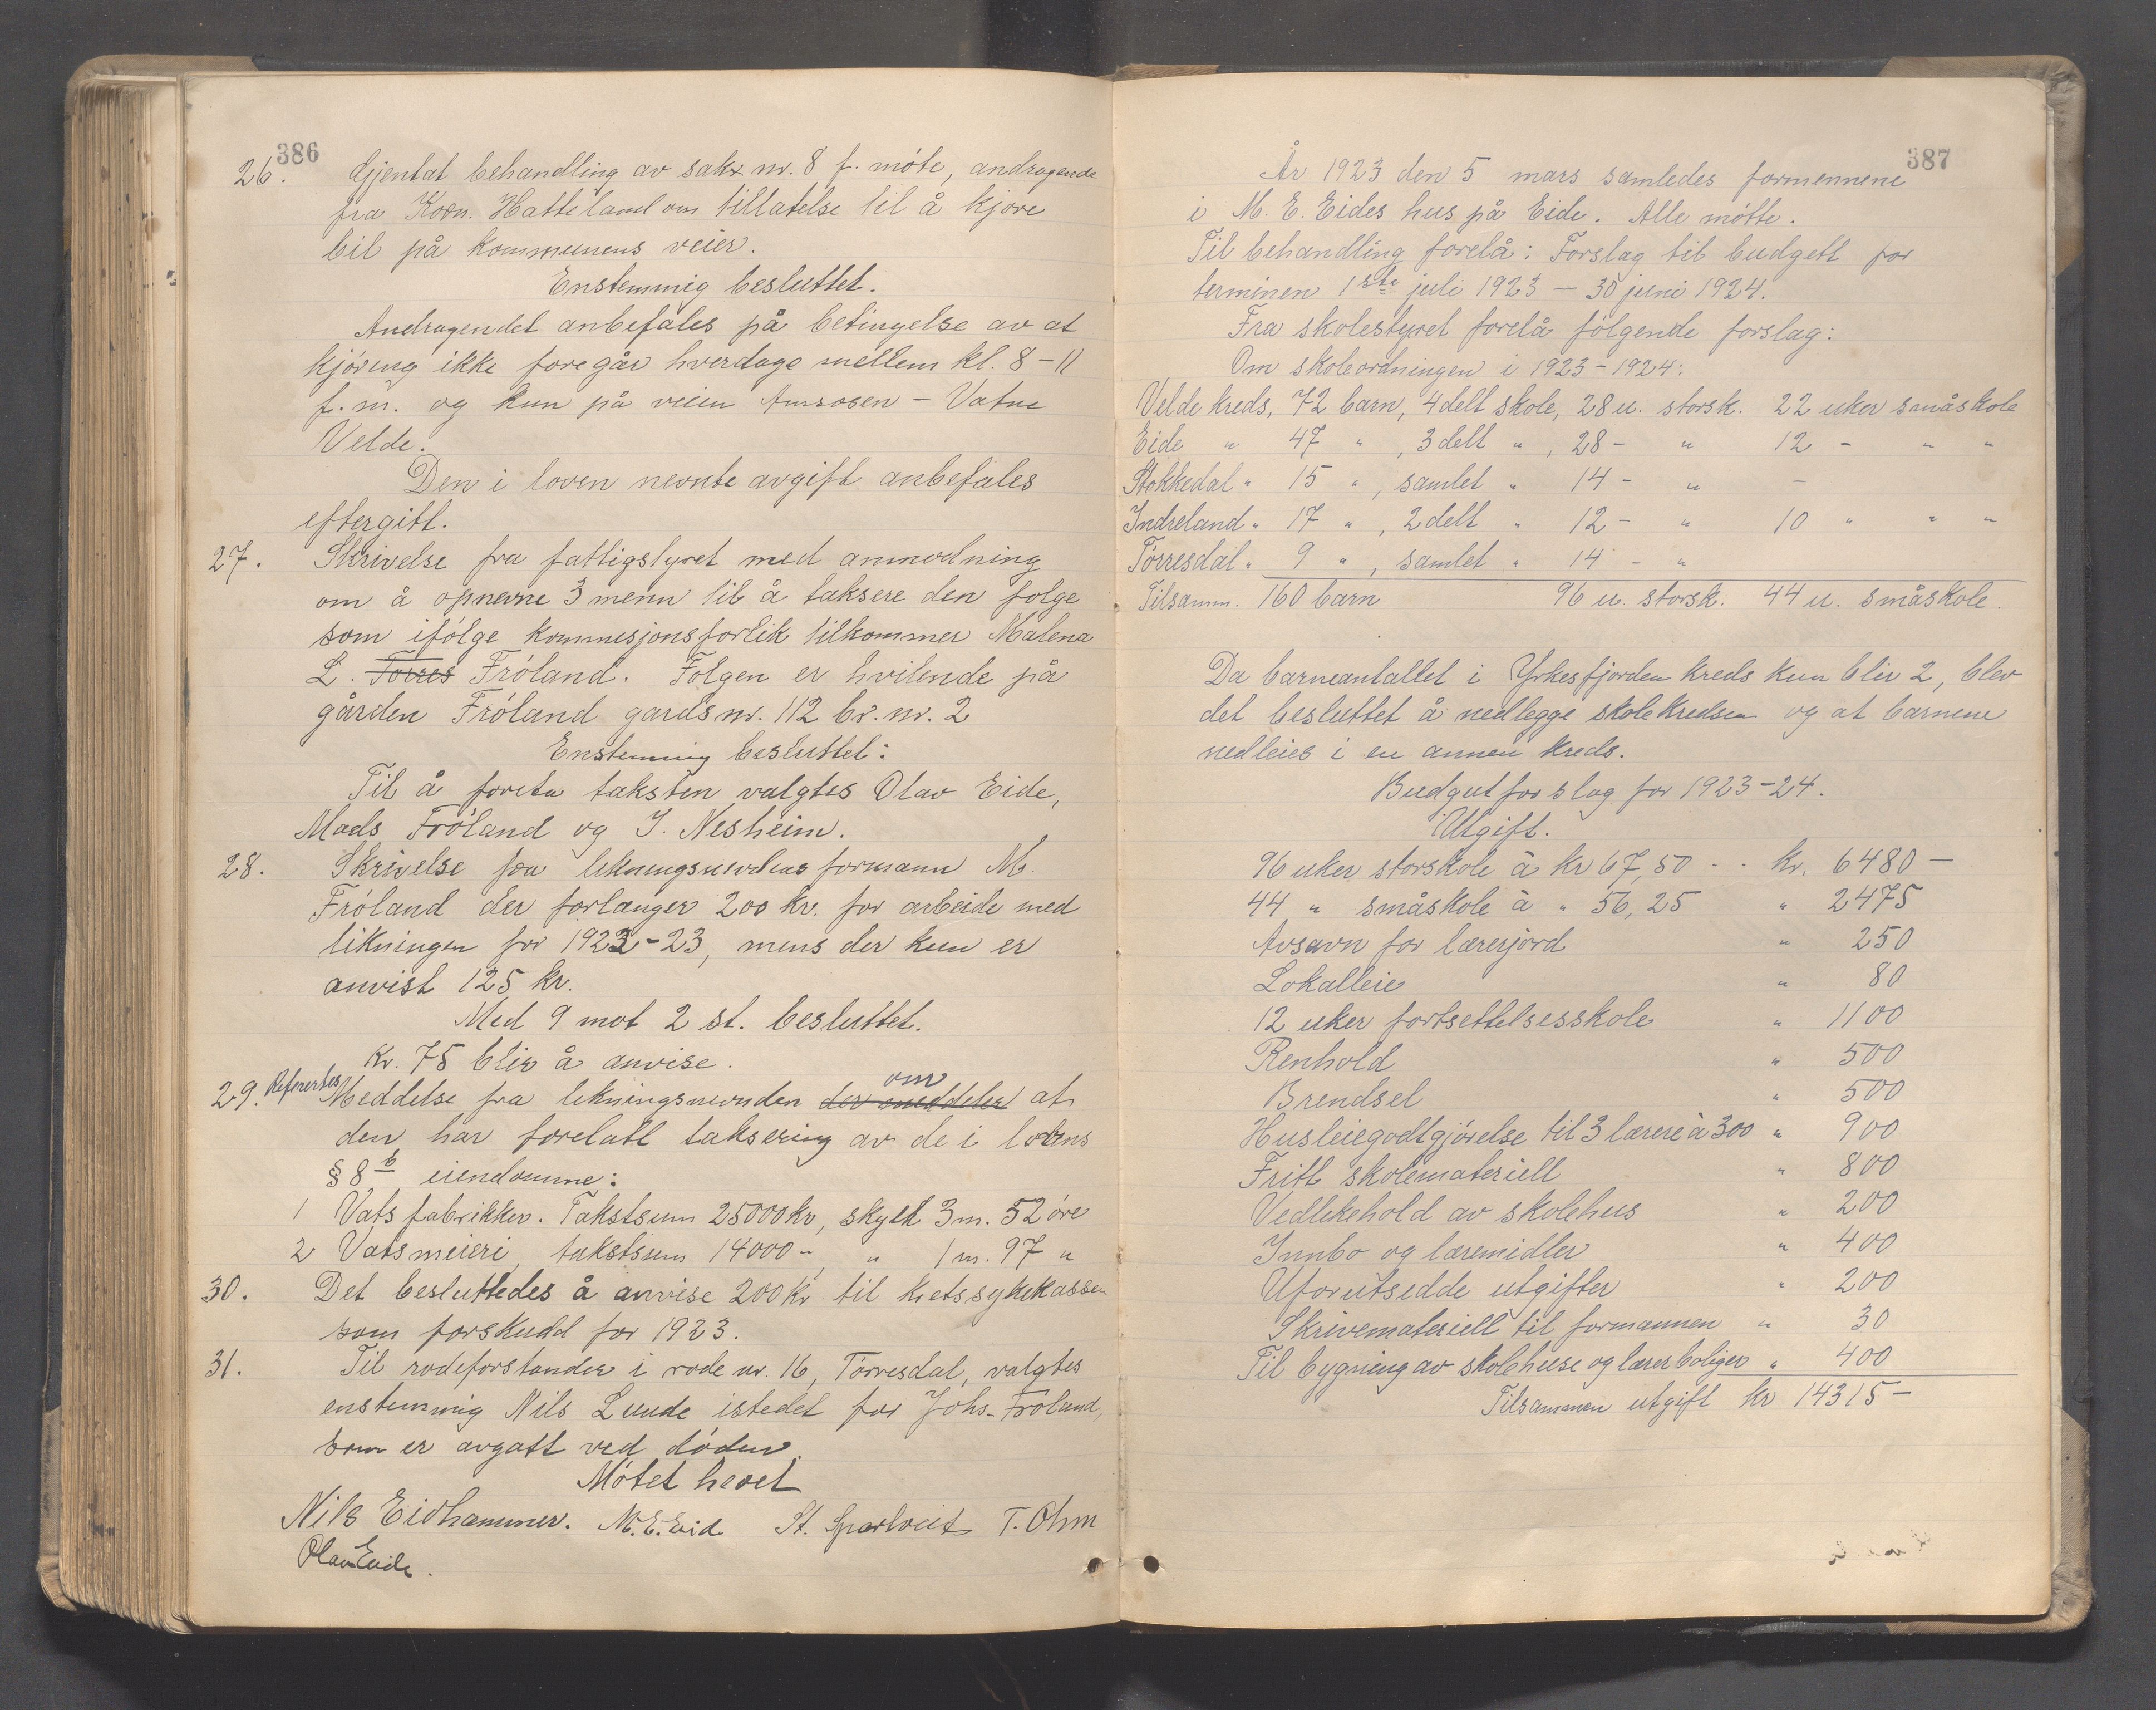 386
26. Gjentat behandling av sak nr. 8 f. møte, andragende
fra Korn. Hatteland om tillatelse til å kjøre
bil på kommunens veier.
Enstemmig besluttet.
Andragendet anbefales på betingelse av at
kjøring ikke foregår hverdage mellem kl. 8-11
f.m. og kun på veien Amsosen - Vatne
Velde.
Den i loven nevnte avgift anbefales
eftergitt.
27. Skrivelse fra fattigstyret med anmodning
om å opnevne 3 menn til å taksere den folge
som ifølge kommisjonsforlik tilkommer Malena
L. Torres Frøland. Folgen er hvilende på
gården Frøland gardsnr. 112 br. nr. 2
Enstemmig besluttet:
Til å foreta taksten valgtes Olav Eide,
Mads Frøland og J. Nesheim.
28. Skrivelse fra likningsnevdens formann M.
Frøland der forlanger 200 kr. for arbeide med
likningen for 1922-23, mens der kun er
anvist 125 kr.
Med 9 mot 2 st. besluttet.
Kr. 75 blir å anvise.
29. Refereres Meddelse fra likningsnevnden der meddeler om at
den har foretatt taksering av de i lovens
§ 8 b eiendomme:
1 Vats fabrikker. Takstsum 25000 kr, skyld 3 m. 52 øre
2 Vatsmeieri, takstsum 14000 -, " 1 m. 97 "
30. Det besluttedes å anvise 200 kr til kretssykekassen
som forskudd for 1923.
31. Til rodeforstander i rode nr. 16, Tørresdal, valgtes
enstemmig Nils Lunde istedet for Johs. Frøland,
som er avgått ved døden.
Møtet hevet
Nils Eidhammer. M. E. Eide St. Spartveit T. Ohm
Olav Eide.
387
År 1923 den 5 mars samledes formennene
i M. E. Eides hus på Eide. Alle møtte.
Til behandling forelå: Forslag til budgett for
terminen 1ste juli 1923 - 30 juni 1924.
Fra skolestyret forelå følgende forslag:
Om skoleordningen i 1923-1924:
Velde kreds, 72 barn, 4delt skole, 28 u. storsk. 22 uker småskole
Eide " 47 " , 3 delt " , 28 - " 12 - " "
Stokkedal " 15 " , samlet " 14 - " -
Indreland " 17 " , 2 delt " 12 - " 10 " " "
Tørresdal " 9 " , samlet " 14 - "
Tilsamm. 160 barn 96 u. storsk. 44 u. småskole.
Da barneantallet i Yrkesfjorden kreds kun blir 2, blev
det besluttet å nedlegge skolekredsen og at barnene
nedleies i en annen kreds.
Budgetforslag for 1923-24.
Utgift.
96 uker storskole à kr 67,50 - - kr. 6480 -
44 " småskole à " 56,25 " 2475
Avsavn for lærerjord " 250
Lokalleie " 80
12 uker fortsettelsesskole " 1100
Renhold " 500
Brendsel " 500
Husleiegodtgjørelse til 3 lærere à 300 " 900
Fritt skolemateriell " 800
Vedlikehold av skolehus " 200
Innbo og læremidler " 400
Uforutsedde utgifter " 200
Skrivemateriell til formannen " 30
Til bygning av skolehuse og lærerboliger " 400
Tilsammen utgift kr 14315 -